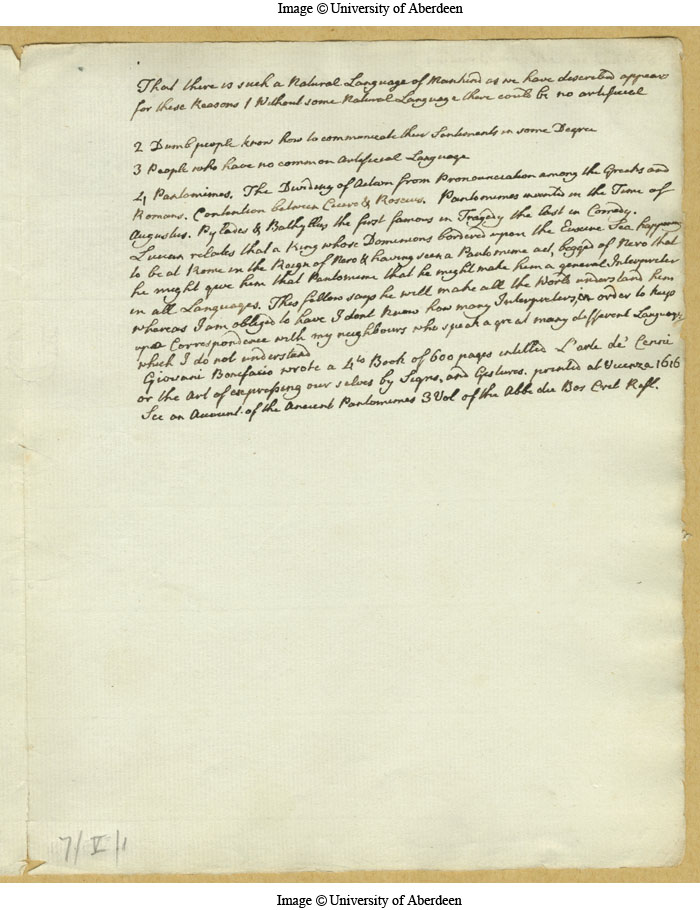 Image © University of Aberdeen
That there is such a Natural Language of Mankind as we have described appears
for these Reasons 1 Without some Natural Language there could be no artificial
2 Dumb people know how to communicate their Sentiments in some Degree
3 People who have no common Artificial Language
4 Pantomimes. The Dividing of Action from Pronounciation among the Greeks and
Romans. Contention between Cicero & Roscius. Pantomimes invented in the Time of
Augustus. Pylades & Bathyllus the first famous in Tragedy the last in Comedy.
Lucian relates that a King whose Dominions bordered upon the Euxine Sea happening
to be at Rome in the Reign of Nero & having seen a Pantomime act, begged of Nero that
he might give him that Pantomime that he might make him a general Interpreter
in all Languages. This fellow says he will make all the World understand him
whereas I am obliged to have I dont know how many Interpreters, in order to keep
up a Correspondence with my neighbours who speak a great many different Languages
which I do not understand
Giovanni Bonifacio wrote a 4to Book of 600 pages intitled L'arte de' Cenni
or the Art of expressing our selves by Signs, and Gestures. printed at Vicenza 1616
See an Account of the Ancient Pantomimes 3 Vol of the Abbe du Bos Crit Refl.
7/V/1
Image © University of Aberdeen